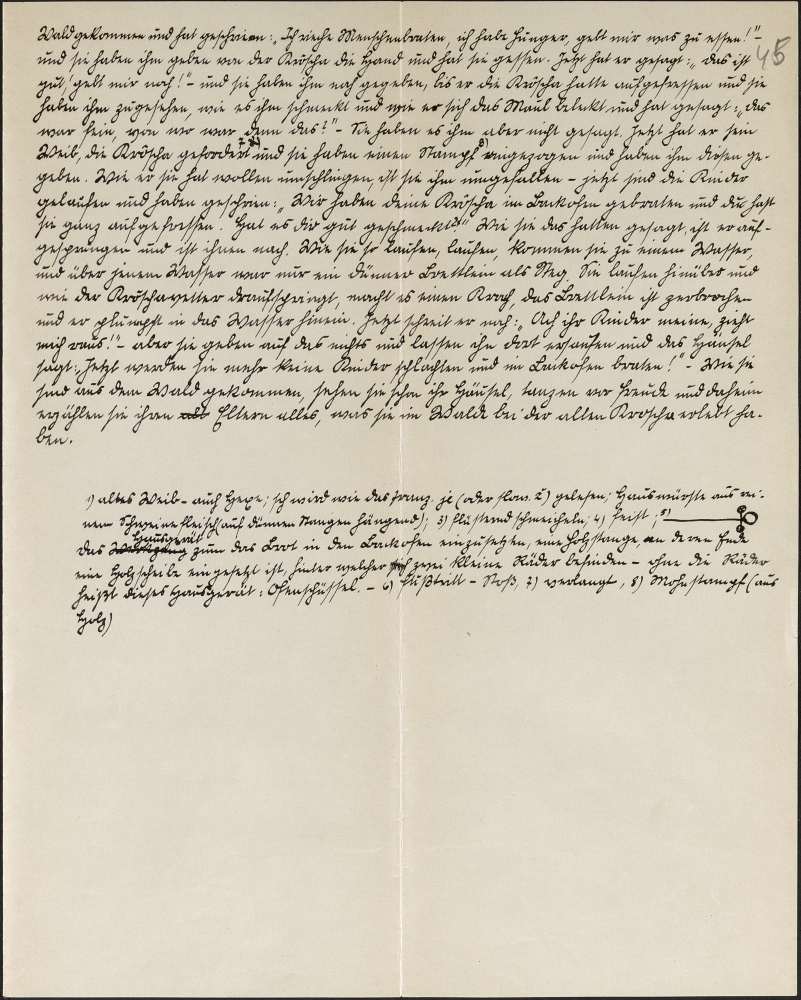 Wald gekommen und hat geschrieen: „Ich rieche Menschenbraten, ich habe Hunger, gebt mir was zu essen!“ –
45
und sie haben ihm geben von der Kröscha die Hand und hat sie gessen. Jetzt hat er gesagt: „das ist
gut, gebt mir noch!“ – und sie haben ihm noch gegeben, bis er die Kröscha hatte aufgefressen und sie
haben ihm zugesehen, wie es ihm schmeckt und wie er sich das Maul beleckt und hat gesagt: „das
war fein, von wo war denn das?“ – Sie haben es ihm aber nicht gesagt. Jetzt hat er sein
Weib, die Kröscha gefordert 7) und sie haben einen Stampf 8) angezogen und haben ihm diesen ge-
geben. Wie er sie hat wollen umschlingen, ist sie ihm umgefallen – jetzt sind die Kinder
gelaufen und haben geschrien: „Wir haben deine Kröscha im Backofen gebraten und du hast
sie ganz aufgefressen. Hat es dir gut geschmeckt?“ Wie sie das hatten gesagt, ist er auf-
gesprungen und ist ihnen nach. Wie sie so laufen, laufen, kommen sie zu einem Wasser,
und über jenem Wasser war nur ein dünner Brettlein als Steg. Sie laufen hinüber und
wie der Kröschavetter draufspringt, macht es einen Krach, das Brettlein ist zerbrochen
und er plumpst in das Wasser hinein. Jetzt schreit er noch: „Ach ihr Kinder meine, zieht
mich raus!“ – aber sie geben auf das nichts und lassen ihn dort ersaufen und das Häusel
sagt: „Jetzt werden sie mehr keine Kinder schlachten und im Backofen braten!“ – Wie sie
sind aus dem Wald gekommen, sehen sie schon ihr Häusel, tanzen vor Freude und daheim
erzählen sie ihren Eltern alles, was sie im Walde bei der alten Kröscha erlebt ha-
ben.
1) altes Weib – auch Hexe; sch wird wie das franz. je (oder slow. ž) gelesen; Hauswürste aus rei-
nem Schweinefleisch (auf dünnen Stangen hängend); 3) flüsternd schmeicheln; 4) feist; 5)
das Hausgerät zum das Brot in den Backofen einzusetzen, eine Holzstange, an deren Ende
eine Holzscheibe eingesetzt ist, hinter welcher sich zwei kleine Räder befinden – ohne die Räder
heißt dieses Hausgerät: Ofenschüssel. – 6) Fußtritt – Stoß, 7) verlangt, 8) Mohnstampf (aus
Holz)